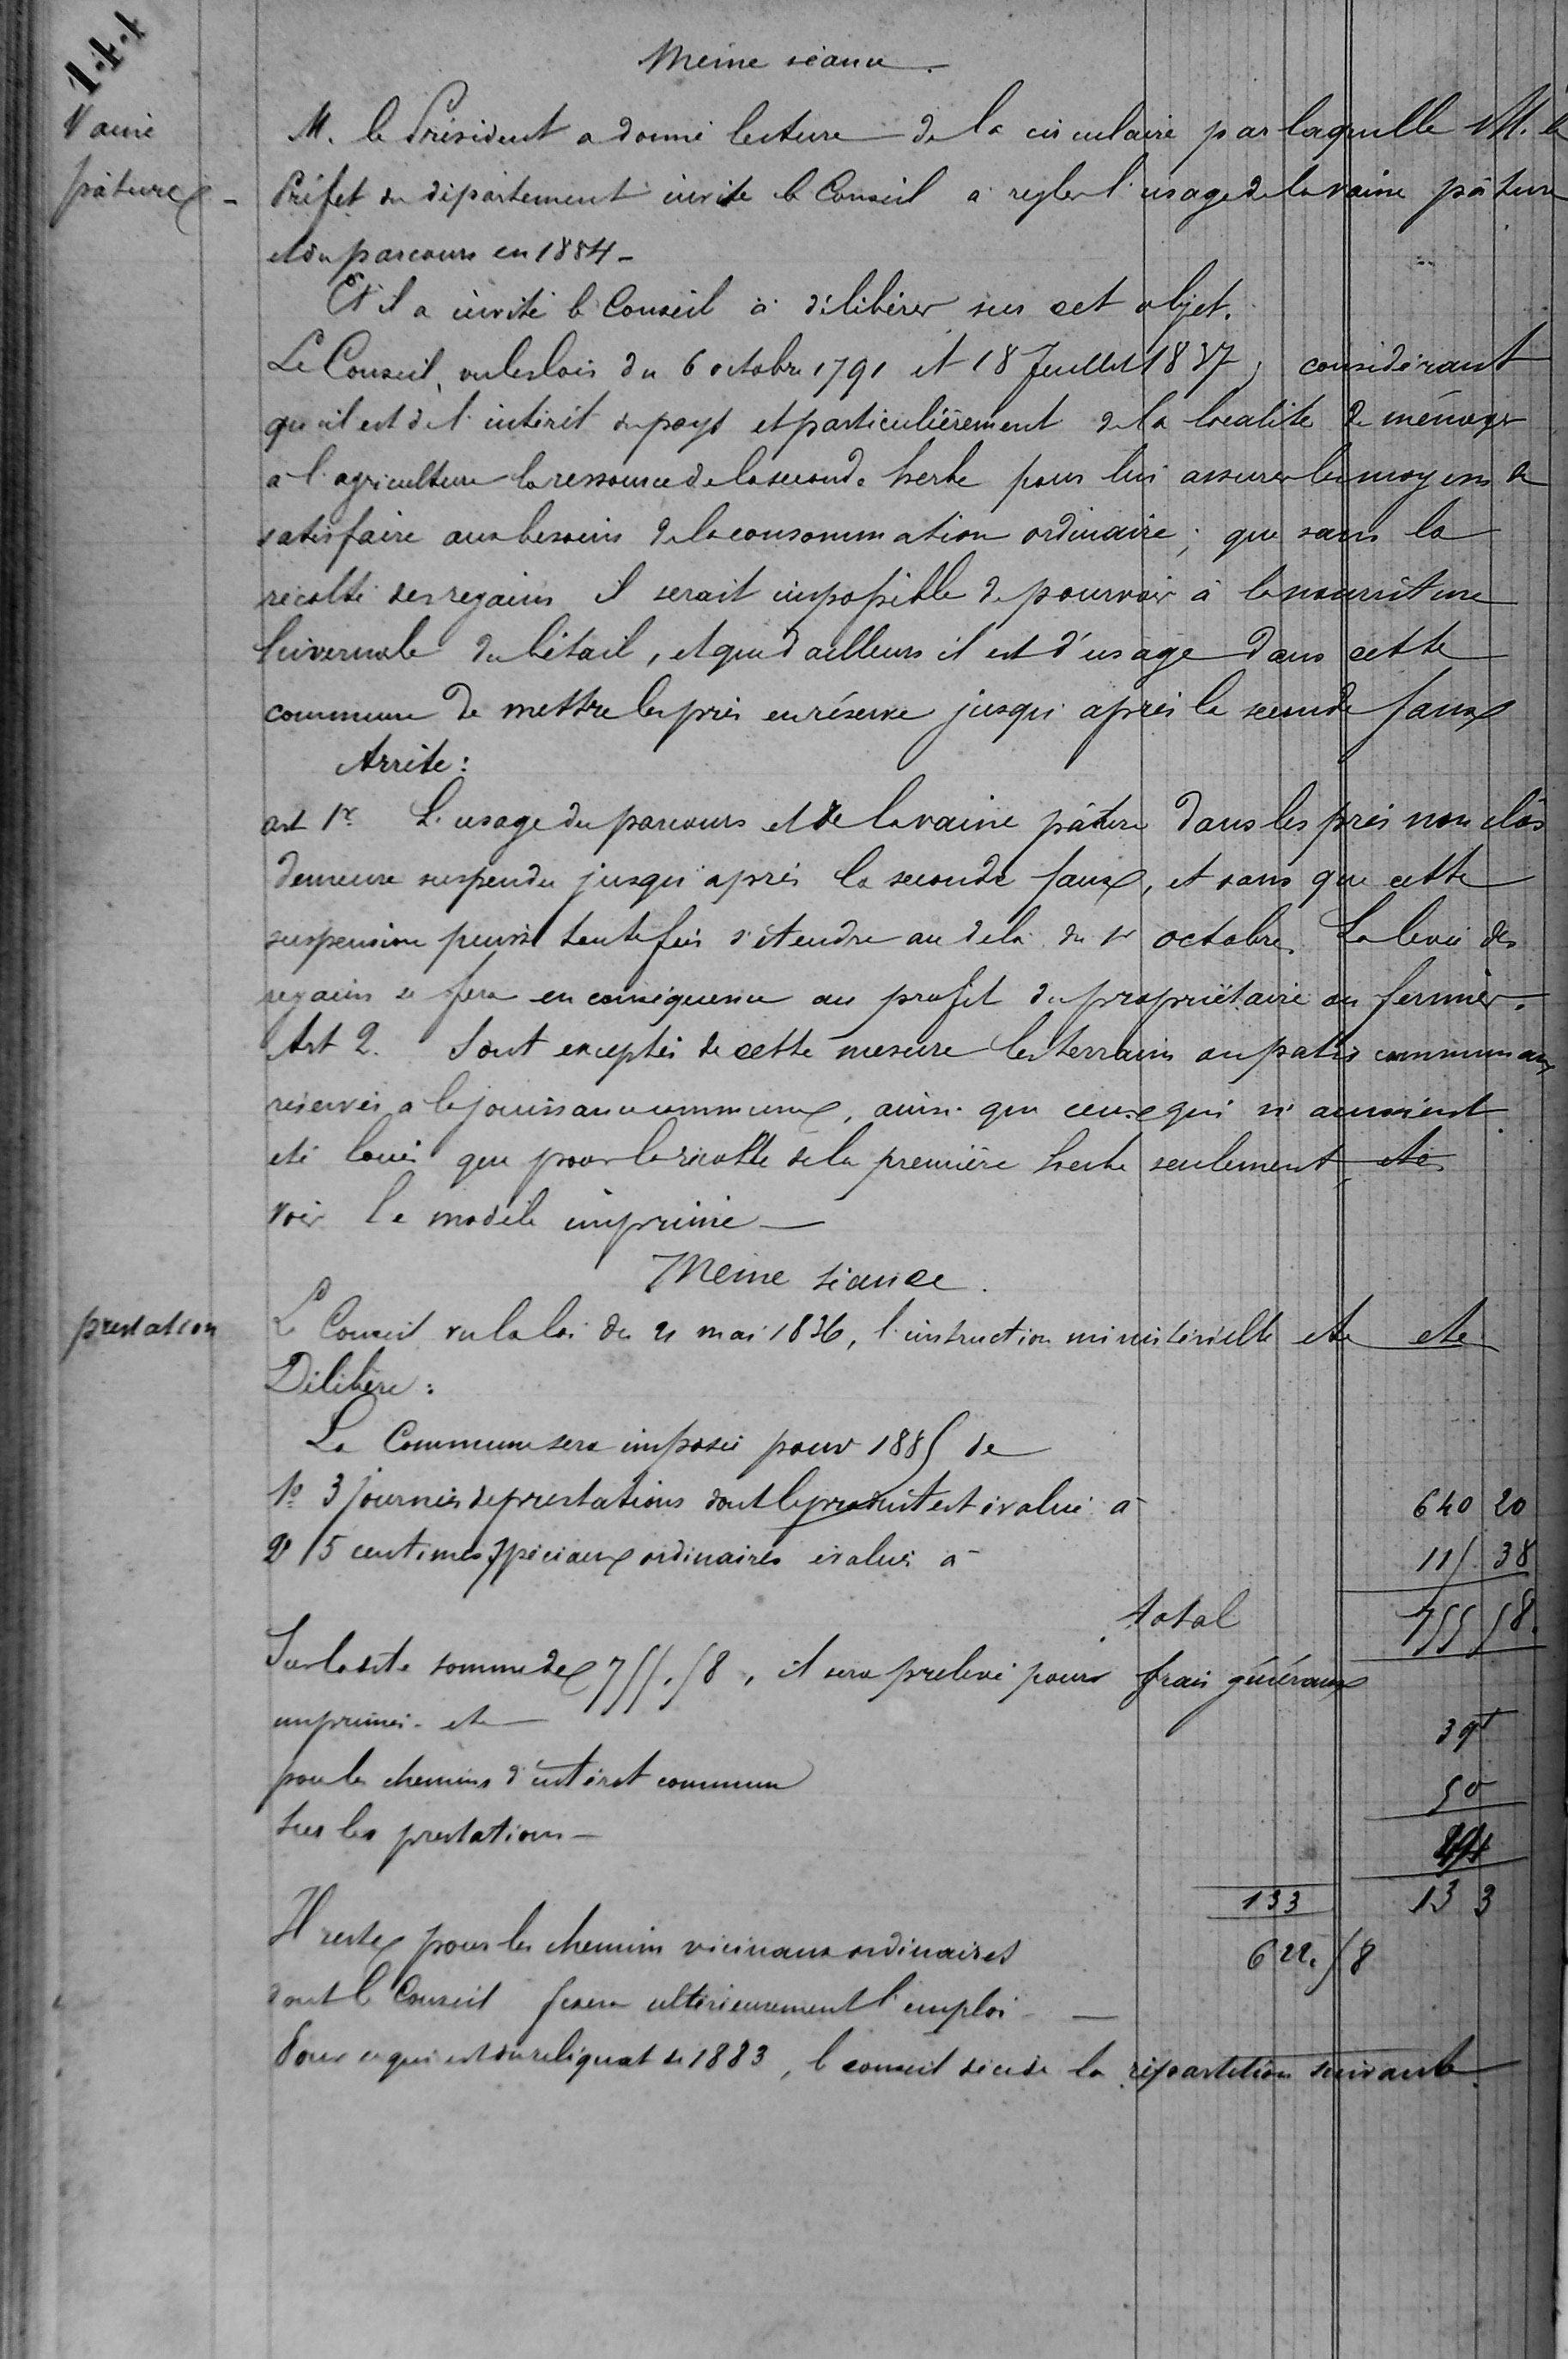 144
Même séance.
Vaine
pâture -
M. le Président a donné lecture de la circulaire par laquelle M. le
Préfet du département invite le Conseil a regler l'usage de la vaine pâture
et du parcours en 1884 -
Et il a invité le Conseil à délibérer sur cet objet.
Le Conseil, vu les lois du 6 octobre 1791 et 18 Juillet 1837, considérant
qu'il est de l'intérêt du pays et particulièrement de la localité de ménager
a l'agriculture la ressource de la seconde herbe pour lui assurer les moyens de
satisfaire aux besoins de la consommation ordinaire; que sans la
récolte des regains il serait impossible de pourvoir à la nourriture
hivernale du bétail, et que d'ailleurs il est d'usage dans cette
commune de mettre les prés en réserve jusqu'après la seconde faux
Arrête:
art 1er L'usage du parcours et de la vaine pâture dans les prés non clos
demeure suspendu jusqu'après la seconde faux, et sans que cette
suspension puisse toutefois s'étendre au delà du 1er octobre. La levée des
regains se fera en conséquence au profit du propriétaire ou fermier.
Art 2. Sont exceptés de cette mesure les terrains ou patis communaux
réservés a la jouissance commune, ainsi que ceux qui n'auraient
été loués que pour la récolte de la première herbe seulement, etc
voir le modèle imprimé -
Même séance.
prestation
Le Conseil vu la loi du 21 mai 1836, l'instruction ministérielle etc etc
Délibère:
La Commune sera imposée pour 1885 de
1° 3 journées de prestations dont le produit est évalué à 640 20
2° 5 centimes spéciaux ordinaires évalués à 115 38
total 755 58.
Sur ladite somme de 755.58, il sera prelevé pour frais généraux
imprimés etc 39
pour les chemins d'intérêt commun 50
Sur les prestations - 44
133 133
Il reste pour les chemins vicinaux ordinaires 622.58
dont le Conseil fixera ultérieurement l'emploi -
Pour ce qui est du reliquat de 1883, le conseil décide la répartition suivante.